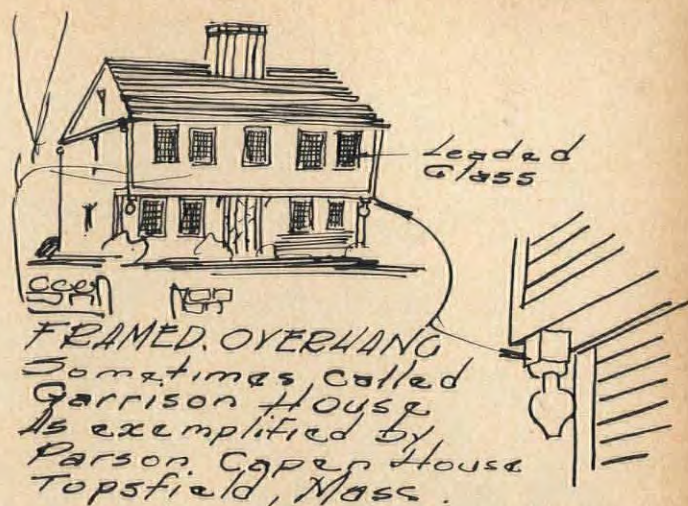 Leaded
Glass
FRAMED. OVERHANG
Sometimes called
Garrison House
As exemplified by
Parson Capen House
Topsfield, Mass.